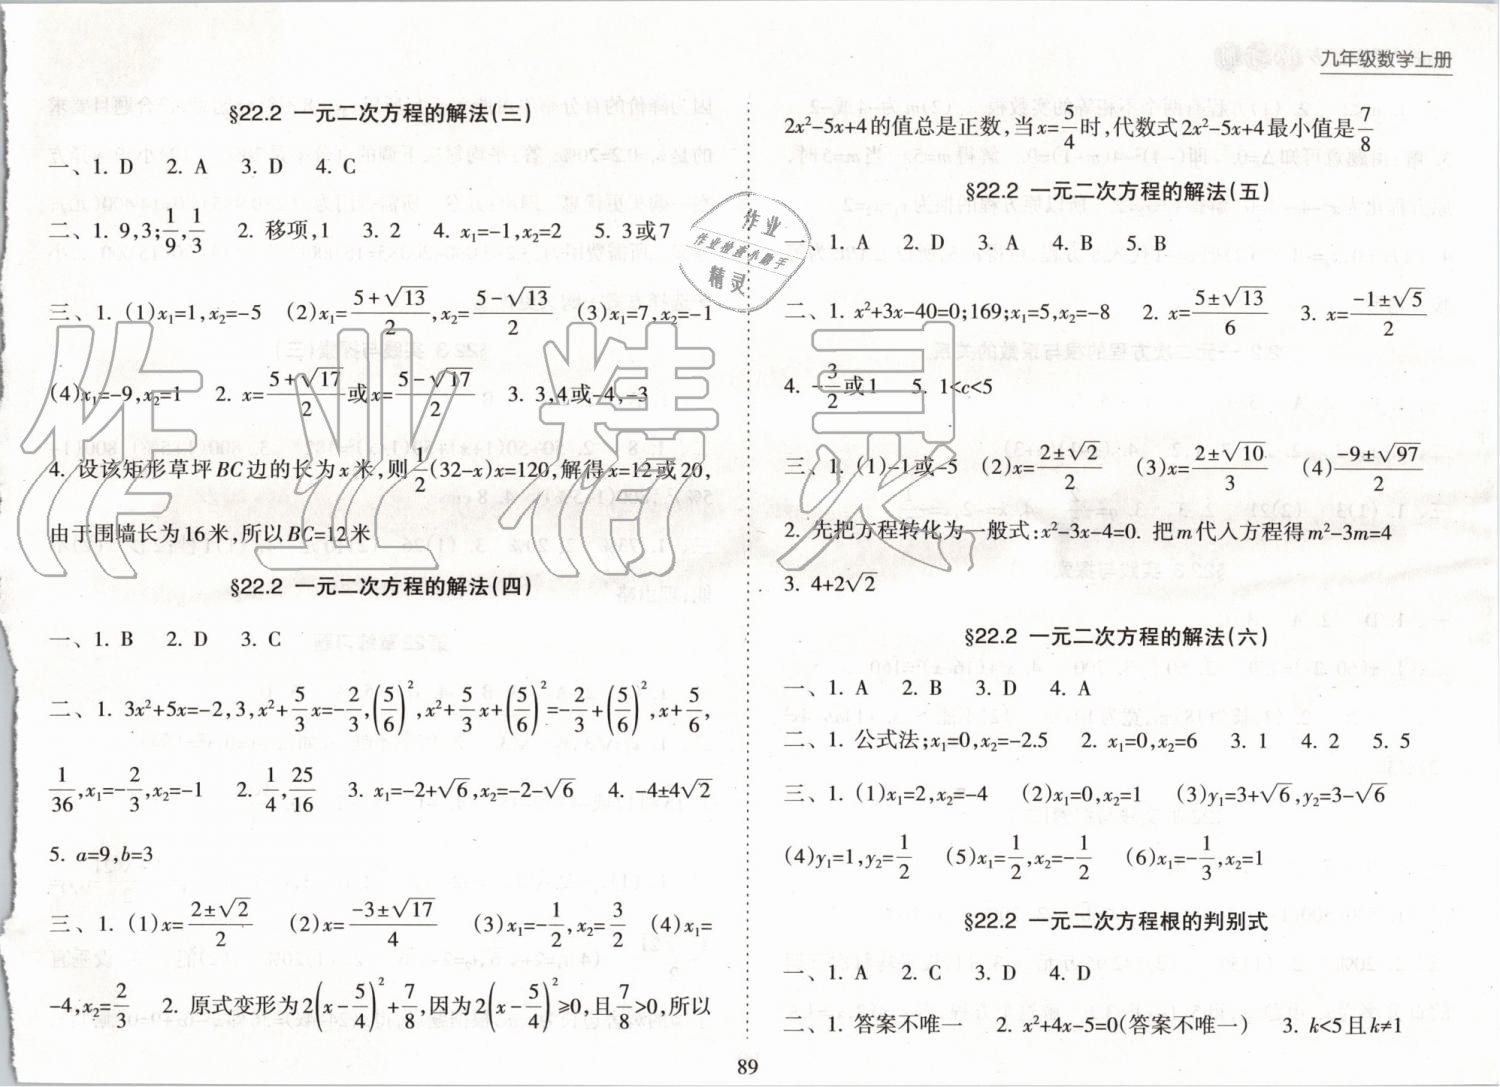 九年级数学上册
§22.2 一元二次方程的解法(三)
一、1. D 2. A 3. D 4. C
二、1. 9,3;1/9,1/3 2. 移项,1 3. 2 4. x₁=-1,x₂=2 5. 3或7
三、1. (1)x₁=1,x₂=-5 (2)x₁=(5+√13)/2,x₂=(5-√13)/2 (3)x₁=7,x₂=-1
(4)x₁=-9,x₂=1 2. x=(5+√17)/2或x=(5-√17)/2 3. 3,4或-4,-3
4. 设该矩形草坪BC边的长为x米,则1/2(32-x)x=120,解得x=12或20,
由于围墙长为16米,所以BC=12米
§22.2 一元二次方程的解法(四)
一、1. B 2. D 3. C
二、1. 3x²+5x=-2,3,x²+5/3x=-2/3,(5/6)²,x²+5/3x+(5/6)²=-2/3+(5/6)²,x+5/6,
1/36,x₁=-2/3,x₂=-1 2. 1/4,25/16 3. x₁=-2+√6,x₂=-2-√6 4. -4±4√2
5. a=9,b=3
三、1. (1)x=(2±√2)/2 (2)x=(-3±√17)/4 (3)x₁=-1/2,x₂=3/2 (4)x₁=
-4,x₂=2/3 2. 原式变形为2(x-5/4)²+7/8,因为2(x-5/4)²≥0,且7/8>0,所以
2x²-5x+4的值总是正数,当x=5/4时,代数式2x²-5x+4最小值是7/8
§22.2 一元二次方程的解法(五)
一、1. A 2. D 3. A 4. B 5. B
二、1. x²+3x-40=0;169;x₁=5,x₂=-8 2. x=(5±√13)/6 3. x=(-1±√5)/2
4. -3/2或1 5. 1<c<5
三、1. (1)-1或-5 (2)x=(2±√2)/2 (3)x=(2±√10)/3 (4)(-9±√97)/2
2. 先把方程转化为一般式:x²-3x-4=0. 把m代入方程得m²-3m=4
3. 4+2√2
§22.2 一元二次方程的解法(六)
一、1. A 2. B 3. D 4. A
二、1. 公式法;x₁=0,x₂=-2.5 2. x₁=0,x₂=6 3. 1 4. 2 5. 5
三、1. (1)x₁=2,x₂=-4 (2)x₁=0,x₂=1 (3)y₁=3+√6,y₂=3-√6
(4)y₁=1,y₂=1/2 (5)x₁=1/2,x₂=-1/2 (6)x₁=-1/3,x₂=1
§22.2 一元二次方程根的判别式
一、1. A 2. C 3. D 4. D
二、1. 答案不唯一 2. x²+4x-5=0(答案不唯一) 3. k<5且k≠1
89
作业
作业检查小助手
精灵
作业精灵